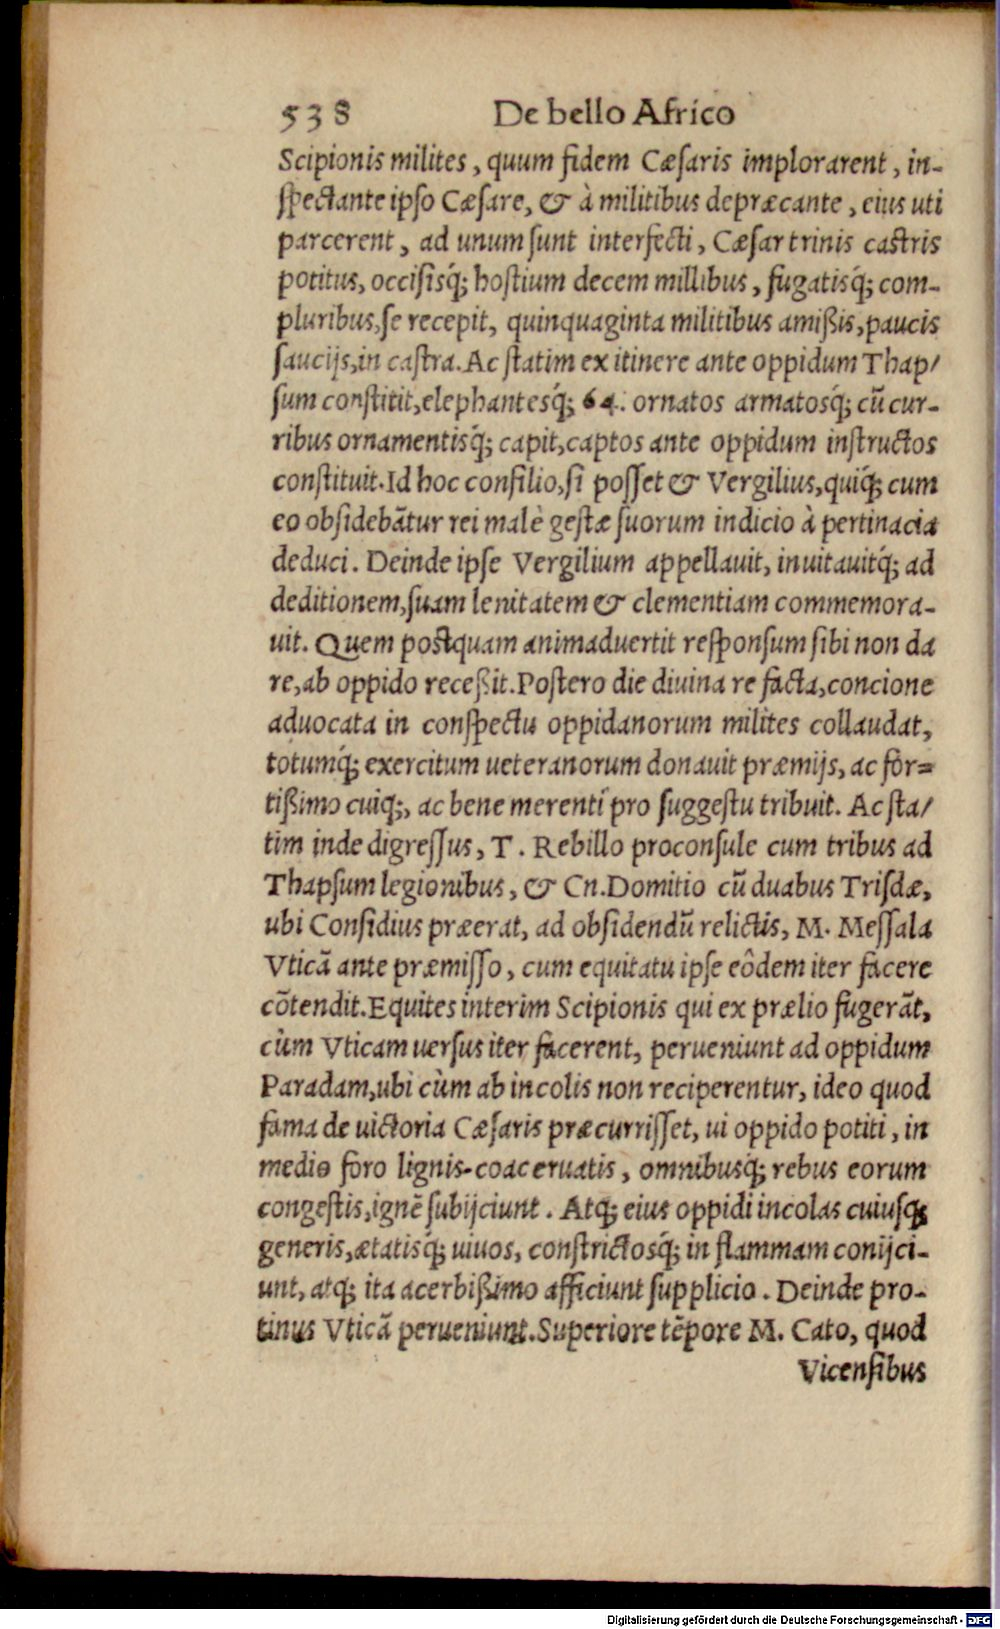 538 De bello Africo
Scipionis milites, quum fidem Cæſaris implorarent, in-
ſpectante ipſo Cæſare, & à militibus depræcante, eius uti
parcerent, ad unum ſunt interfecti, Cæſar trinis caſtris
potitus, occiſisq́; hoſtium decem millibus, fugatisq́; com-
pluribus, ſe recepit, quinquaginta militibus amißis, paucis
ſaucijs, in caſtra. Ac ſtatim ex itinere ante oppidum Thap/
ſum conſtitit, elephantesq́; 64. ornatos armatosq́; cũ cur-
ribus ornamentisq́; capit, captos ante oppidum inſtructos
conſtituit. Id hoc conſilio, ſi poſſet & Vergilius, quiq́; cum
eo obſidebãtur rei malè geſtæ ſuorum indicio à pertinacia
deduci. Deinde ipſe Vergilium appellauit, inuitauitq́; ad
deditionem, ſuam lenitatem & clementiam commemora-
uit. Quem poſtquam animaduertit reſponſum ſibi non da
re, ab oppido receßit. Poſtero die diuina re facta, concione
aduocata in conſpectu oppidanorum milites collaudat,
totumq́; exercitum ueteranorum donauit præmijs, ac for=
tißimo cuiq;, ac bene merenti pro ſuggeſtu tribuit. Ac ſta/
tim inde digreſſus, T. Rebillo proconſule cum tribus ad
Thapſum legionibus, & Cn. Domitio cũ duabus Triſdæ,
ubi Conſidius præerat, ad obſidendũ relictis, M. Meſſala
Vticã ante præmiſſo, cum equitatu ipſe eôdem iter facere
cõtendit. Equites interim Scipionis qui ex prælio fugerãt,
cùm Vticam uerſus iter facerent, perueniunt ad oppidum
Paradam, ubi cùm ab incolis non reciperentur, ideo quod
fama de uictoria Cæſaris præcurriſſet, ui oppido potiti, in
medio foro lignis coaceruatis, omnibusq́; rebus eorum
congeſtis, ignẽ ſubijciunt. Atq́; eius oppidi incolas cuiuſq;
generis, ætatisq́; uiuos, conſtrictosq́; in flammam conijci-
unt, atq́; ita acerbißimo afficiunt ſupplicio. Deinde pro-
tinus Vticã perueniunt. Superiore tẽpore M. Cato, quod
Vicenſibus
Digitalisierung gefördert durch die Deutsche Forschungsgemeinschaft - DFG